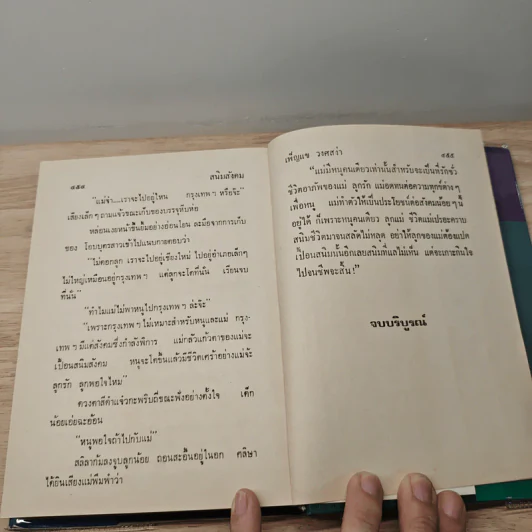 ๔๙๔ สนิมสังคม
"แม่จ๋า....เราจะไปอยู่ไหน กรุงเทพ ฯ หรือจ๊ะ"
เสียงเล็ก ๆ ถามแจ้วขณะเก็บของบรรจุหีบห่อ
หล่อนเงยหน้าขึ้นยิ้มอย่างอ่อนโยน ละมือจากการเก็บ
ของ โอบบุตรสาวเข้าไปแนบกายตอบว่า
"ไม่ดอกลูก เราจะไปอยู่เชียงใหม่ ไปอยู่อำเภอเล็กๆ
ไม่ใหญ่เหมือนอยู่กรุงเทพ ฯ แต่ลูกจะโตที่นั่น เรียนจบ
ที่นั่น"
"ทำไมแม่ไม่พาหนูไปกรุงเทพ ฯ ล่ะจ๊ะ"
"เพราะกรุงเทพ ฯ ไม่เหมาะสำหรับหนูและแม่ กรุง-
เทพ ฯ มีแต่สังคมซึ่งกำลังพิการ แม่กลัวแก้วตาของแม่จะ
เปื้อนสนิมสังคม หนูจะโตขึ้นแล้วมีชีวิตเศร้าอย่างแม่จ้ะ
ลูกรัก ลูกพอใจไหม"
ดวงตาสีดำแจ๋วกะพริบถี่ขณะฟังอย่างตั้งใจ เด็ก
น้อยเอ่ยฉะอ้อน
"หนูพอใจถ้าไปกับแม่"
สลิลาก้มลงจูบลูกน้อย ถอนสะอื้นอยู่ในอก คลิษา
ได้ยินเสียงแม่พึมพำว่า
เพ็ญแข วงศสง่า ๔๙๕
"แม่มีหนูคนเดียวเท่านั้นสำหรับจะเป็นที่รักชั่ว
ชีวิตอาภัพของแม่ ลูกรัก แม่อดทนต่อความทุกข์ต่าง ๆ
เพื่อหนู แม่ทำตัวให้เป็นประโยชน์ต่อสังคมน้อย ๆ นี้
อยู่ได้ ก็เพราะหนูคนเดียว ลูกแม่ ชีวิตแม่เปรอะคราบ
สนิมชีวิตมาจนสลัดไม่หลุด อย่าให้ลูกของแม่ต้องแปด
เปื้อนสนิมนั้นอีกเลยสนิมที่แลไม่เห็น แต่จะเกาะกินใจ
ไปจนชีพจะสิ้น!"
จบบริบูรณ์